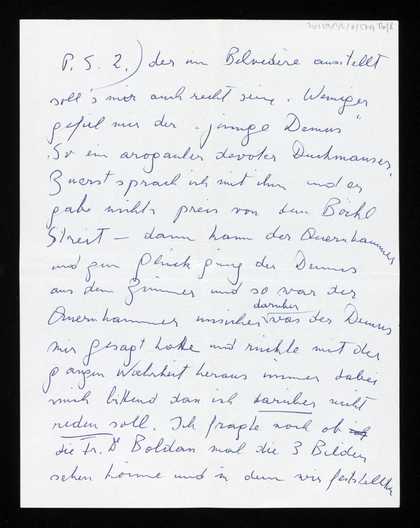 P.S. 2.) der im Belvedere ausstellt
soll's mir auch recht sein. Weniger
gefiel mir der "junge Demus"
So ein aroganter devoter Duckmauser,
Zuerst sprach ich mit ihm und er
gabe nichts preis von dem Böckl
Streit – dann kam der Querhammer
und zum Glück ging der Demus
aus dem Zimmer und so war der
Querhammer unsicher darüber was der Demus
mir gesagt hatte und rückte mit der
ganzen Wahrheit heraus immer dabei
mich bittend dass ich darüber nicht
reden soll. Ich fragte noch ob
die Fr. Dr Boldan mal die 3 Bilder
sehen könne und in dem wir feststellten